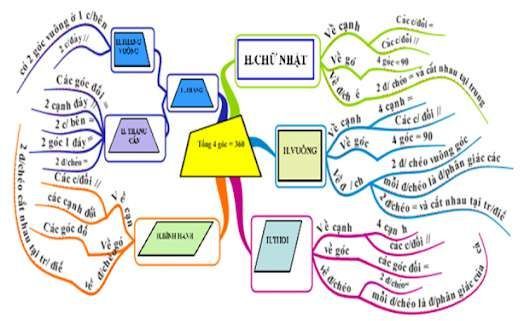 Tổng 4 góc = 360
H.CHỮ NHẬT
Về cạnh
Các c/đối =
Các c/đối //
Về gó
4 góc = 90
Về đ/ch é
2 đ/ chéo = và cất nhau tại trung
H.VUÔNG
Về cạnh
4 cạnh =
Các c/ đối //
Về góc
4 góc = 90
Về đ / ch
2 đ/ chéo vuông góc
mỗi đ/chéo là đ/phân giác các
2 đ/chéo = và cất nhau tại tr/điể
H.THOI
Về cạnh
4 cạn h
các c/đối //
về góc
các góc đối =
về đ/chéo
2 đ/chéo=
mỗi đ/chéo là đ/phân giác của
cá
H.BÌNH HÀNH
Về cạn
Các c/đối //
các cạnh đối
Về gó
Các góc đố
về đ/chéo
2 đ/chéo cất nhau tại tr/ điể
H.THANG
VUÔNG
có 2 góc vuông ở 1 c/bên
2 c/đáy //
H. THANG
CÂN
Các góc đối =
2 cạnh đáy //
2 c/ bên =
2 góc 1 đáy =
2 đ/chéo =